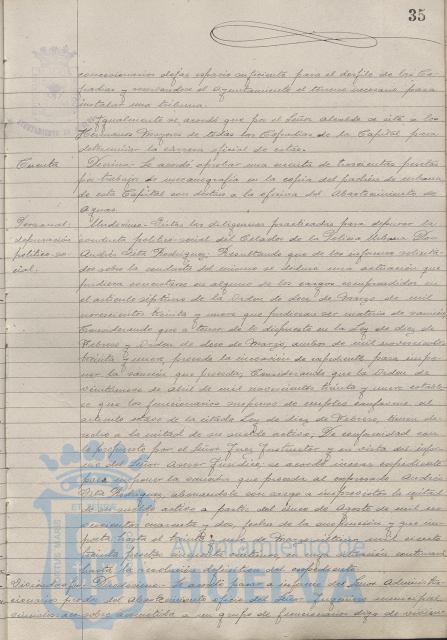 35
concesionarios dejar espacio suficiente para el desfile de las Co-
fradias y reservandose el Ayuntamiento el terreno necesario para
instalar una tribuna.
Igualmente se acordó que por el Señor alcalde se cite a los
Hermanos Mayores de todas las Cofradias de la Capital para
determinar la carrera oficial de estas.
Cuenta Décima.- Se acordó aprobar una cuenta de trescientas pesetas
por trabajos de mecanografia en la copia del padrón de
de esta Capital con destino a la oficina del Abastecimiento de
aguas.
Personal Undécimo.- Vistas las diligencias practicadas para depurar la
depuración conducta politico-social del Celador de la Policia Urbana Don
politico-so- Andrés Pita Rodriguez; Resultando que de los informes solicita-
cial. dos sobre la conducta del mismo se deduce una actuación que
pudiera encontrarse en alguno de los cargos comprendidos en
el articulo séptimo de la Orden de doce de Marzo de mil
novecientos treinta y nueve que pudieran ser materia de sanción;
Considerando que a tenor de lo dispuesto en la Ley de diez de
Febrero y Orden de doce de Marzo, ambas de mil novecientos
treinta y nueve, procede la incoación de expediente para impo-
ner la sanción que proceda; Considerando que la Orden de
veintinueve de abril de mil novecientos treinta y nueve estable-
ce que los funcionarios suspensos de empleo conforme al
articulo octavo de la citada Ley de diez de Febrero, tienen de-
recho a la mitad de su sueldo activo; De conformidad con
lo propuesto por el Señor Juez Instructor y en vista del infor-
me del Señor Asesor Juridico, se acordó incoar expediente
para imponer la sanción que proceda al empleado Andrés
Pita Rodriguez, abonandole con cargo a imprevistos la mitad
de su sueldo activo a partir del cinco de Agosto de mil no-
vecientos cuarenta y dos, fecha de la suspensión y que im-
porta hasta el treinta y uno de Marzo
treinta pesetas
hasta la resolución definitiva del expediente.
Duodécimo.- Se acordó pasar a informe del Señor Administra-
dor del Abastecimiento oficio del Señor Ingeniero municipal
Ayuntamiento de